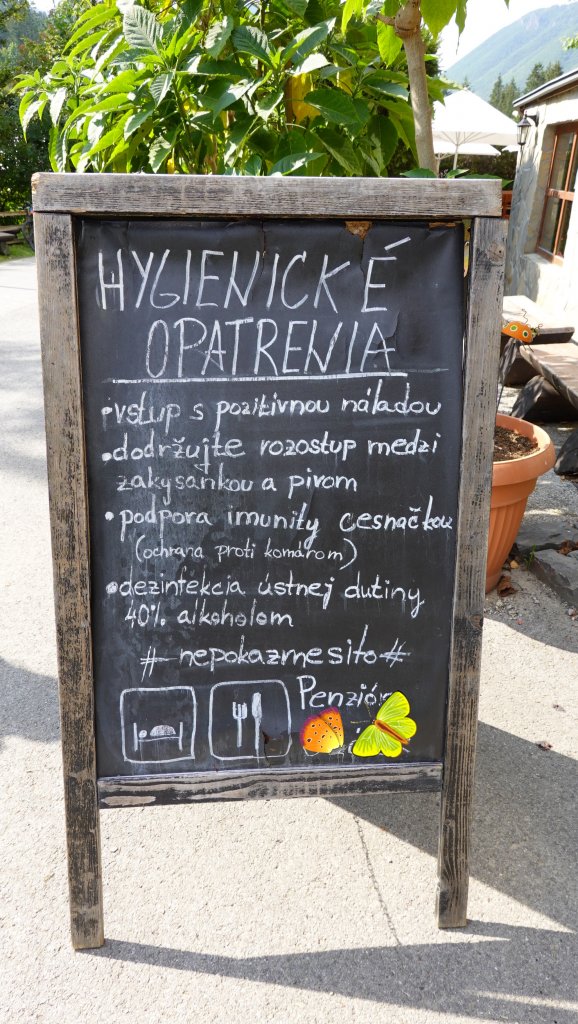 HYGIENICKÉ
OPATRENIA
• vstup s pozitívnou náladou
• dodržujte rozostup medzi
zakysankou a pivom
• podpora imunity cesnačkou
(ochrana proti komárom)
• dezinfekcia ústnej dutiny
40% alkoholom
#nepokazmesito#
Penzión